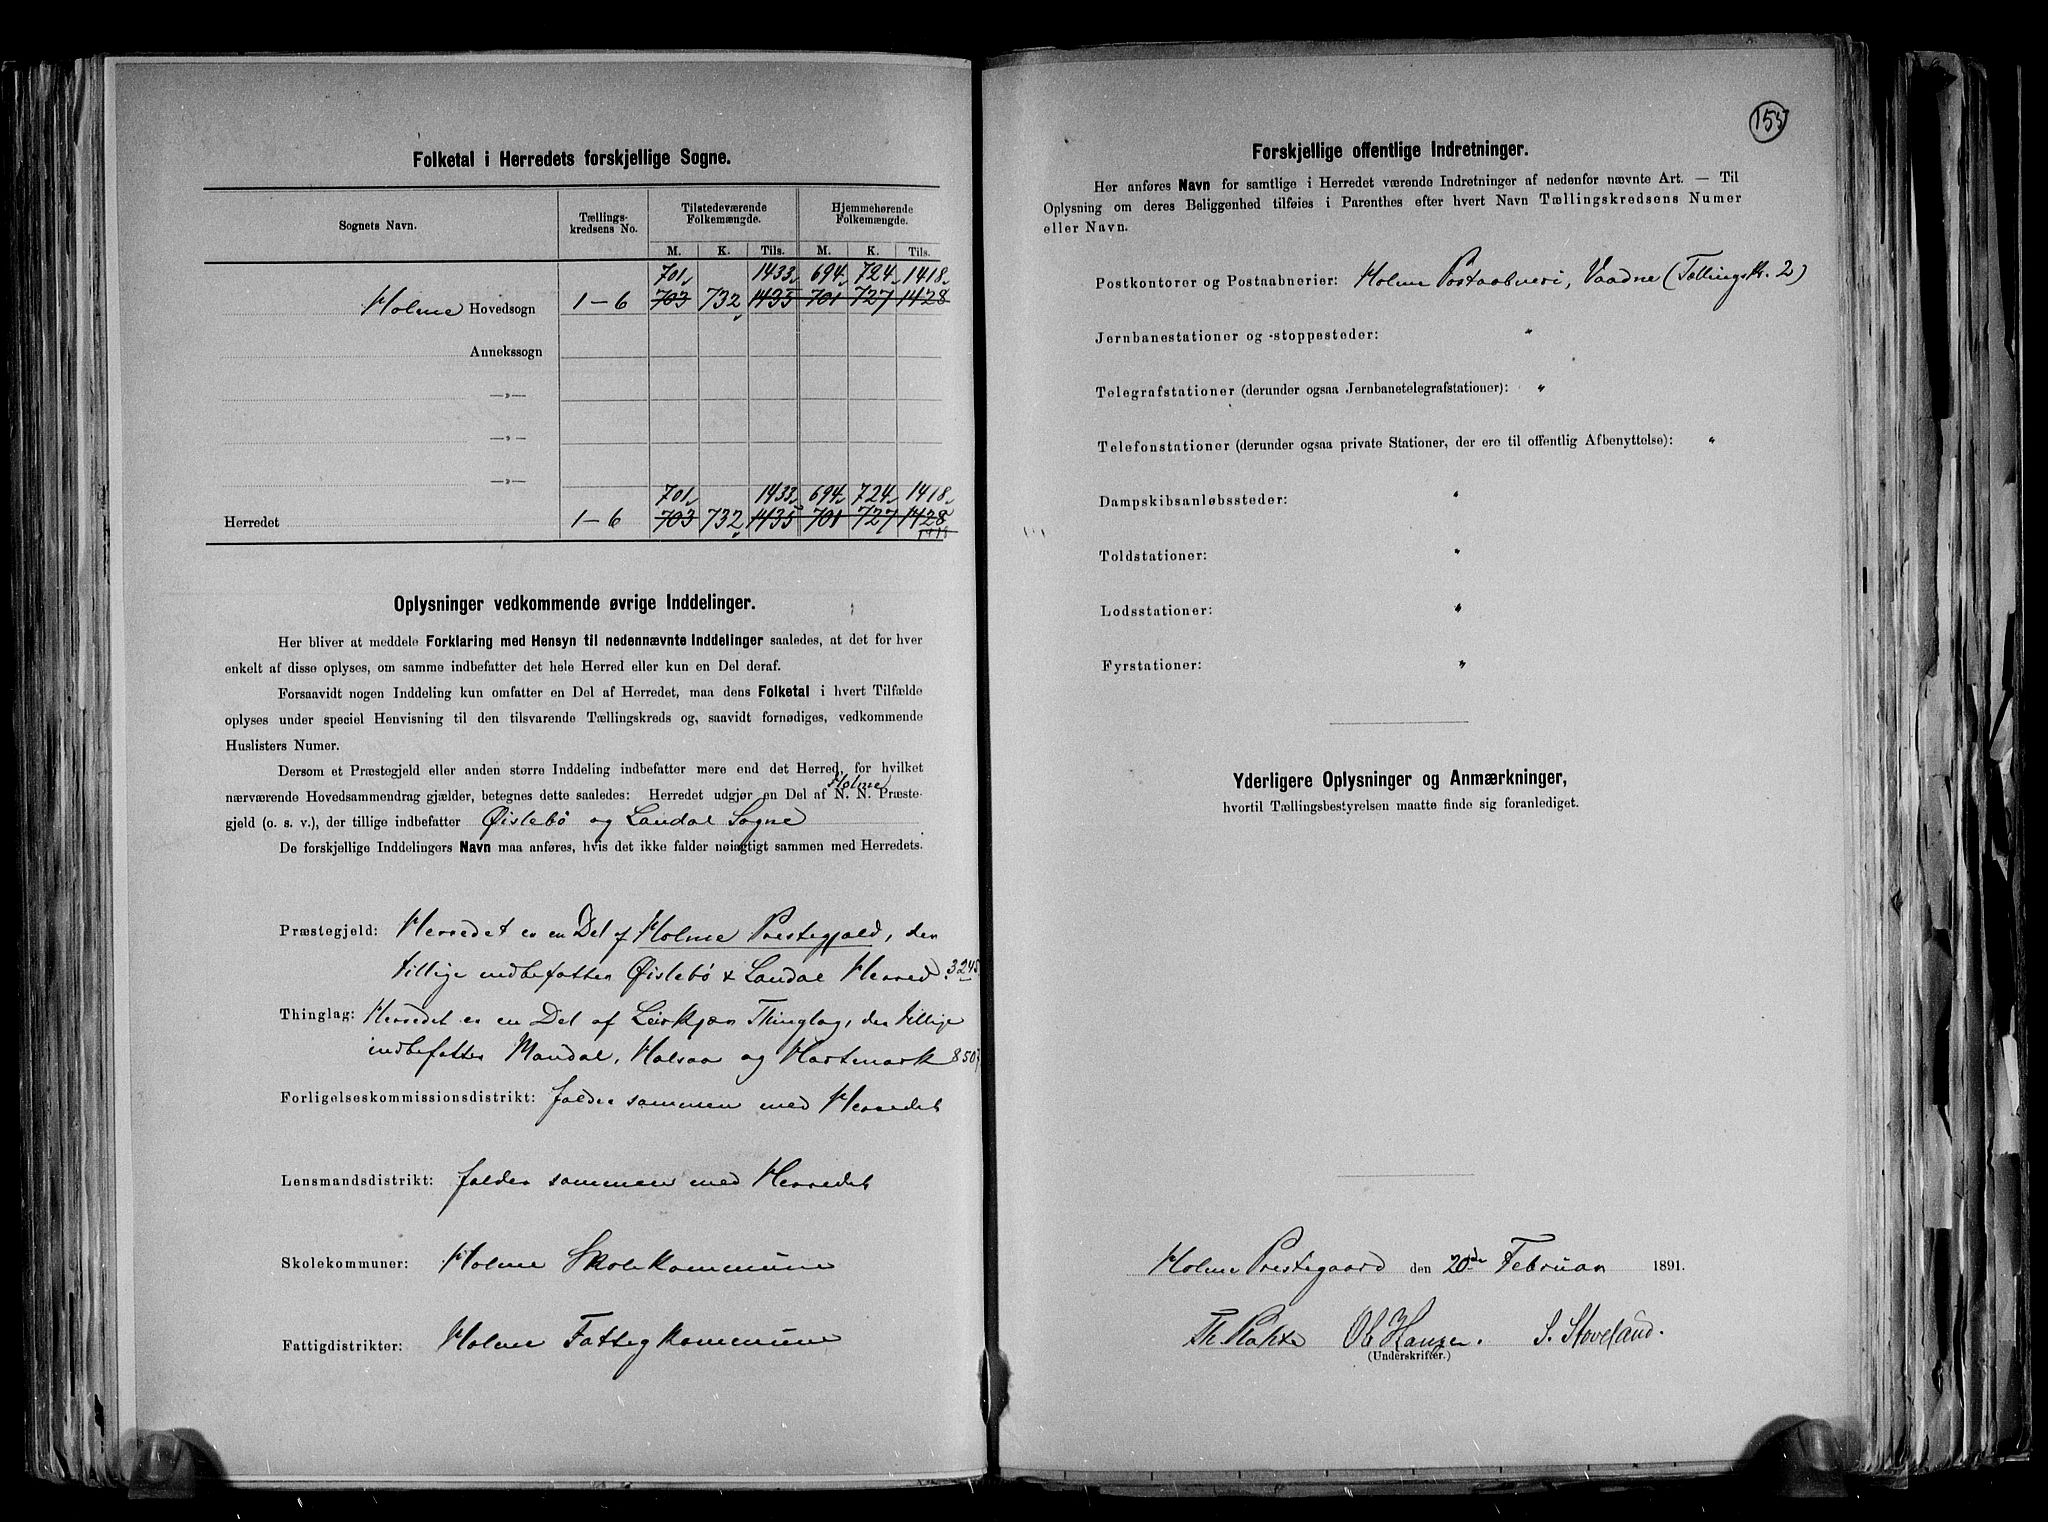 Folketal i Herredets forskjellige Sogne.
Sognets Navn. Tællings-kredsens No. Tilstedeværende Folkemængde. Hjemmehørende Folkemængde.
M. K. Tils. M. K. Tils.
701 1433 694 724 1418
Holme Hovedsogn 1-6 703 732 1435 701 727 1428
Annekssogn
—„—
—„—
—„—
701 1433 694 724 1418
Herredet 1-6 703 732 1435 701 727 1428
1418
Oplysninger vedkommende øvrige Inddelinger.
Her bliver at meddele Forklaring med Hensyn til nedennævnte Inddelinger saaledes, at det for hver
enkelt af disse oplyses, om samme indbefatter det hele Herred eller kun en Del deraf.
Forsaavidt nogen Inddeling kun omfatter en Del af Herredet, maa dens Folketal i hvert Tilfælde
oplyses under speciel Henvisning til den tilsvarende Tællingskreds og, saavidt fornødiges, vedkommende
Huslisters Numer.
Dersom et Præstegjeld eller anden større Inddeling indbefatter mere end det Herred, for hvilket
Holme
nærværende Hovedsammendrag gjælder, betegnes dette saaledes: Herredet udgjør en Del af N. N. Præste-
gjeld (o. s. v.), der tillige indbefatter Øislebø og Laudal Sogne
De forskjellige Inddelingers Navn maa anføres, hvis det ikke falder nøiagtigt sammen med Herredets.
Præstegjeld: Herredet er en Del af Holme Prestegjæld, der
tillige indbefatter Øislebø & Laudal Herred. 3245
Thinglag: Herredet er en Del af Leirkjær Thinglag, der tillige
indbefatter Mandal, Halsaa og Hartmark 850
Forligelseskommissionsdistrikt: falder sammen med Herredet
Lensmandsdistrikt: falder sammen med Herredet
Skolekommuner: Holme Skolekommune
Fattigdistrikter: Holme Fattigkommune
153
Forskjellige offentlige Indretninger.
Her anføres Navn for samtlige i Herredet værende Indretninger af nedenfor nævnte Art. — Til
Oplysning om deres Beliggenhed tilføies i Parenthes efter hvert Navn Tællingskredsens Numer
eller Navn.
Postkontorer og Postaabnerier: Holme Postaabneri, Vaadne (Tellingskr. 2)
Jernbanestationer og -stoppesteder: "
Telegrafstationer (derunder ogsaa Jernbanetelegrafstationer): "
Telefonstationer (derunder ogsaa private Stationer, der ere til offentlig Afbenyttelse): "
Dampskibsanløbssteder: "
Toldstationer: "
Lodsstationer: "
Fyrstationer: "
Yderligere Oplysninger og Anmærkninger,
hvortil Tællingsbestyrelsen maatte finde sig foranlediget.
Holme Prestegaard den 20de Februar 1891.
Th. Ol. Hansen. S. Stoveland.
(Underskrifter.)